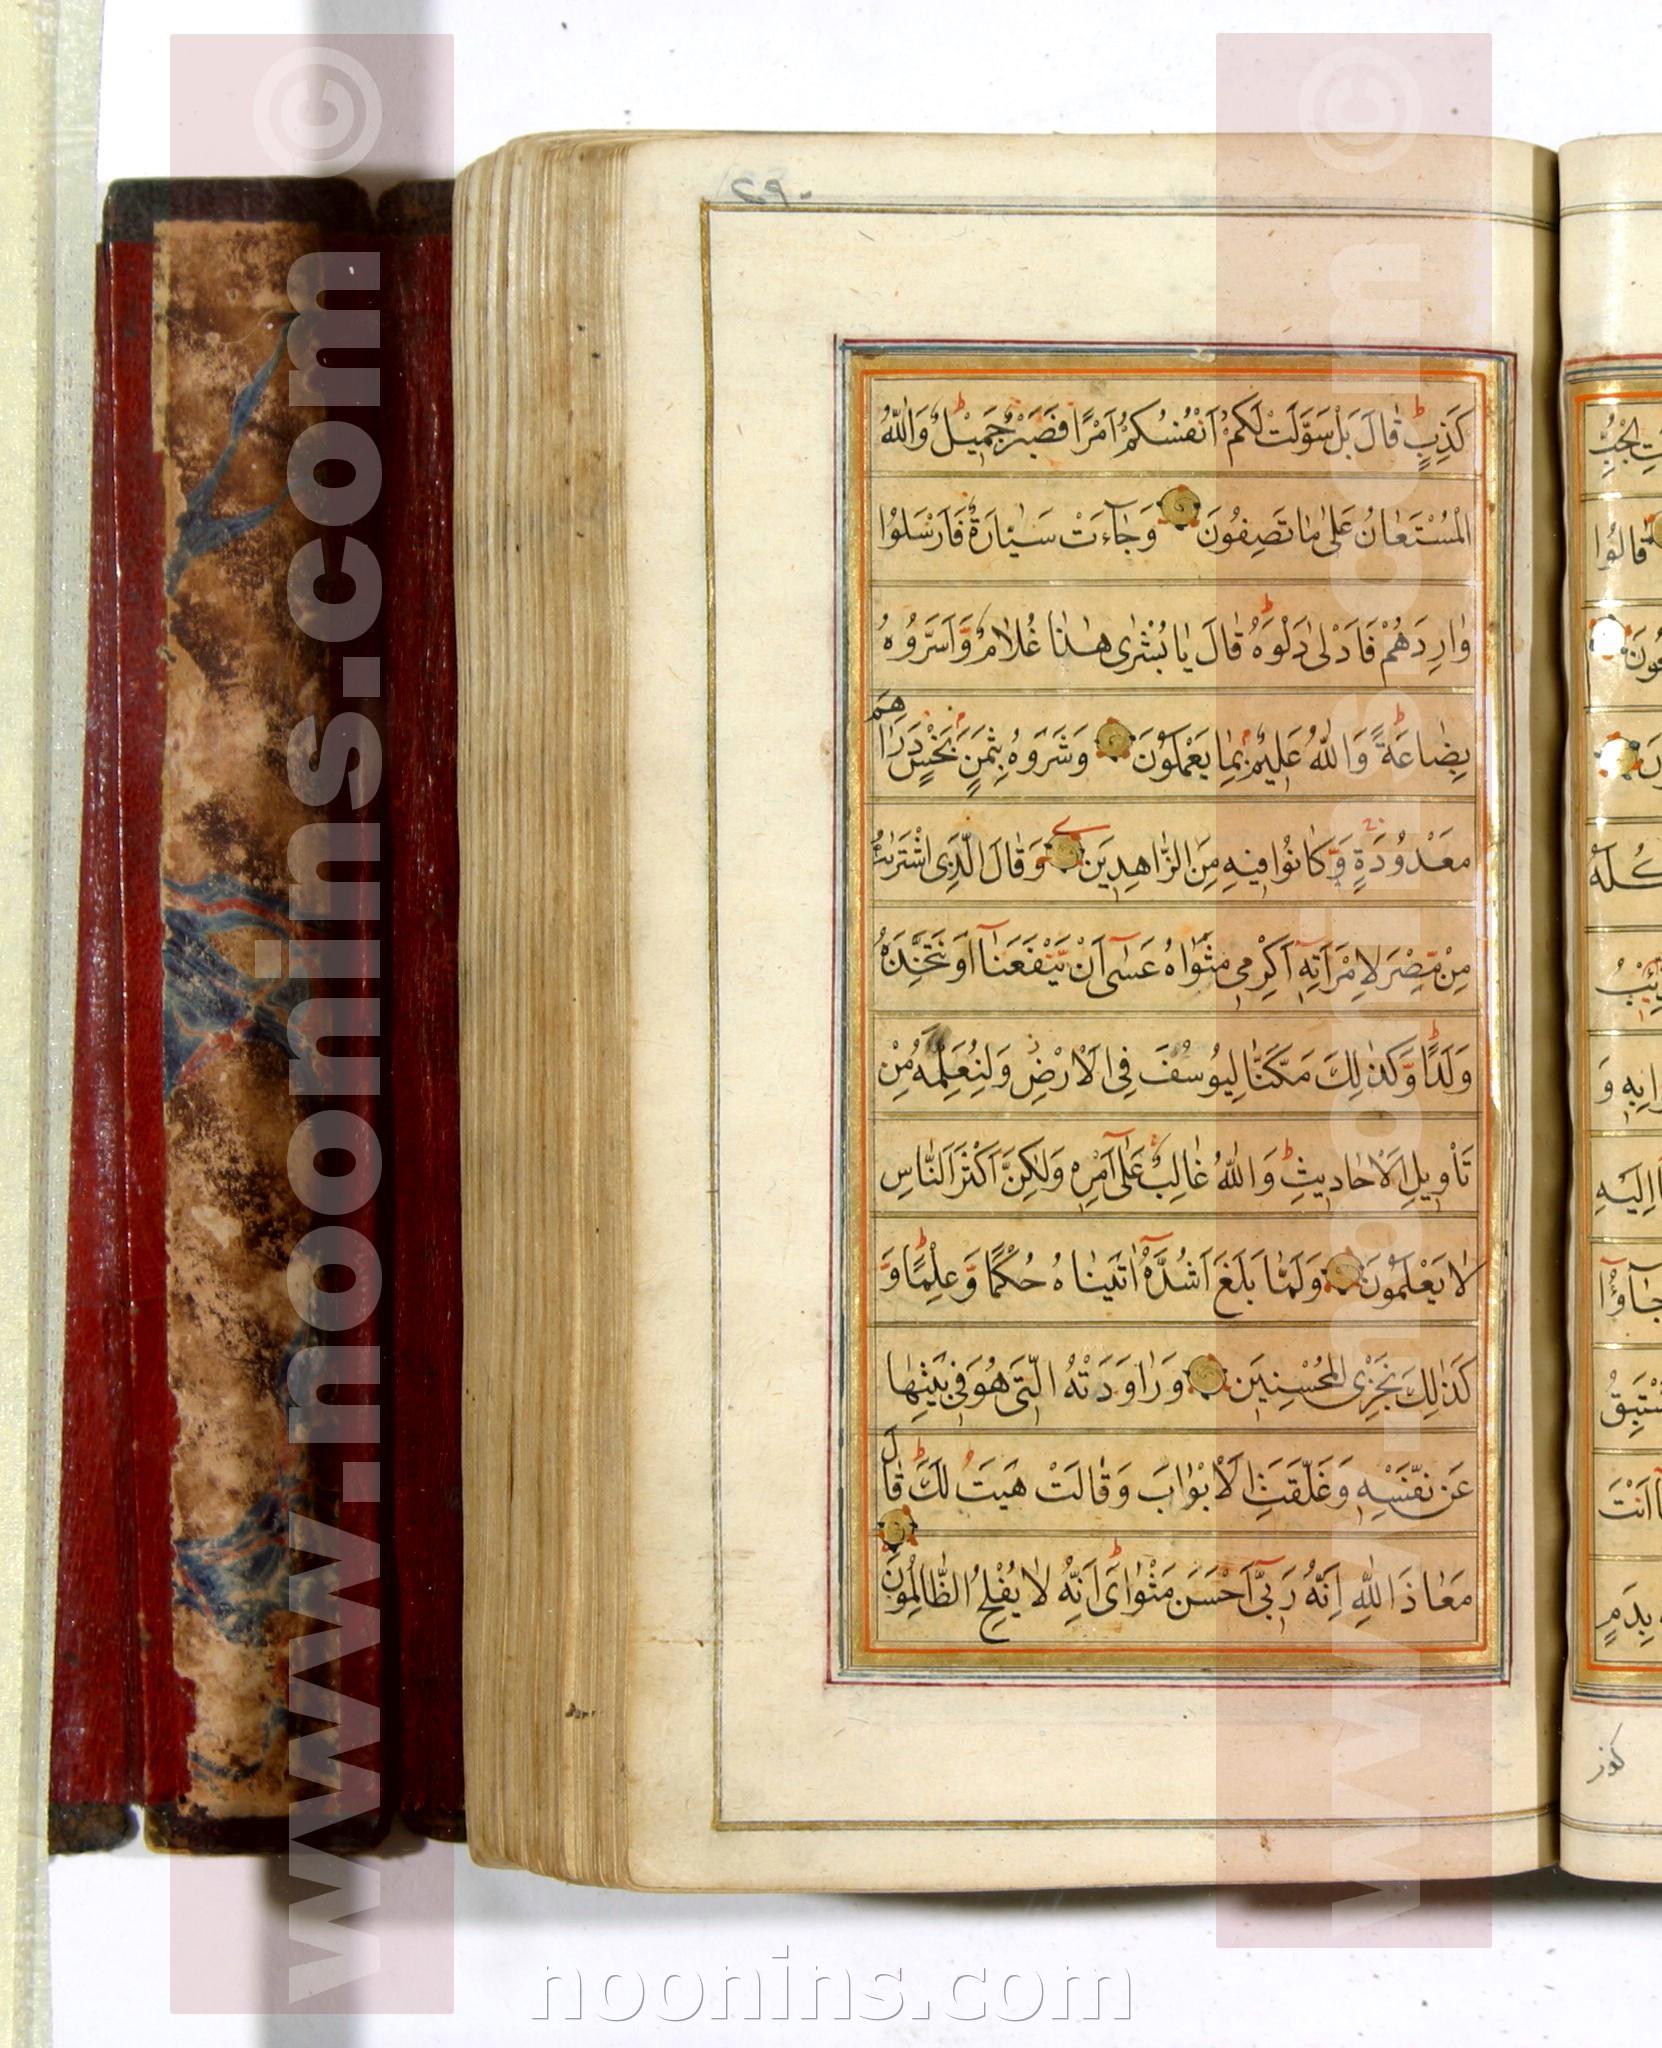 كَذِبٍ قَالَ بَلْ سَوَّلَتْ لَكُمْ اَنْفُسُكُمْ اَمْرًا فَصَبْرٌ جَمِيلٌ وَاللّٰهُ
الْمُسْتَعَانُ عَلٰى مَا تَصِفُونَ وَجَآءَتْ سَيَّارَةٌ فَاَرْسَلُوا
وَارِدَهُمْ فَاَدْلٰى دَلْوَهُ قَالَ يَا بُشْرٰى هٰذَا غُلَامٌ وَّاَسَرُّوهُ
بِضَاعَةً وَاللّٰهُ عَلِيمٌ بِمَا يَعْمَلُونَ وَشَرَوْهُ بِثَمَنٍ بَخْسٍ دَرَاهِمَ
مَعْدُودَةٍ وَّكَانُوا فِيهِ مِنَ الزَّاهِدِينَ وَقَالَ الَّذِى اشْتَرٰيهُ
مِنْ مِّصْرَ لِامْرَاَتِهِٓ اَكْرِمِى مَثْوَاهُ عَسٰٓى اَنْ يَّنْفَعَنَآ اَوْ نَتَّخِذَهُ
وَلَدًا وَّكَذٰلِكَ مَكَّنَّا لِيُوسُفَ فِى الْاَرْضِ وَلِنُعَلِّمَهُ مِنْ
تَاْوِيلِ الْاَحَادِيثِ وَاللّٰهُ غَالِبٌ عَلٰٓى اَمْرِهِ وَلٰكِنَّ اَكْثَرَ النَّاسِ
لَا يَعْلَمُونَ وَلَمَّا بَلَغَ اَشُدَّهُٓ اٰتَيْنَاهُ حُكْمًا وَّعِلْمًا وَّ
كَذٰلِكَ نَجْزِى الْمُحْسِنِينَ وَرَاوَدَتْهُ الَّتِى هُوَ فِى بَيْتِهَا
عَنْ نَّفْسِهِ وَغَلَّقَتِ الْاَبْوَابَ وَقَالَتْ هَيْتَ لَكَ قَالَ
مَعَاذَ اللّٰهِ اِنَّهُ رَبِّىٓ اَحْسَنَ مَثْوَاىَ اِنَّهُ لَا يُفْلِحُ الظَّالِمُونَ
قَالُوا
اِلَيْهِ
جَآؤُٓا
اَنْتَ
بِدَمٍ
© www.noonins.com
© www.noonins.com
noonins.com